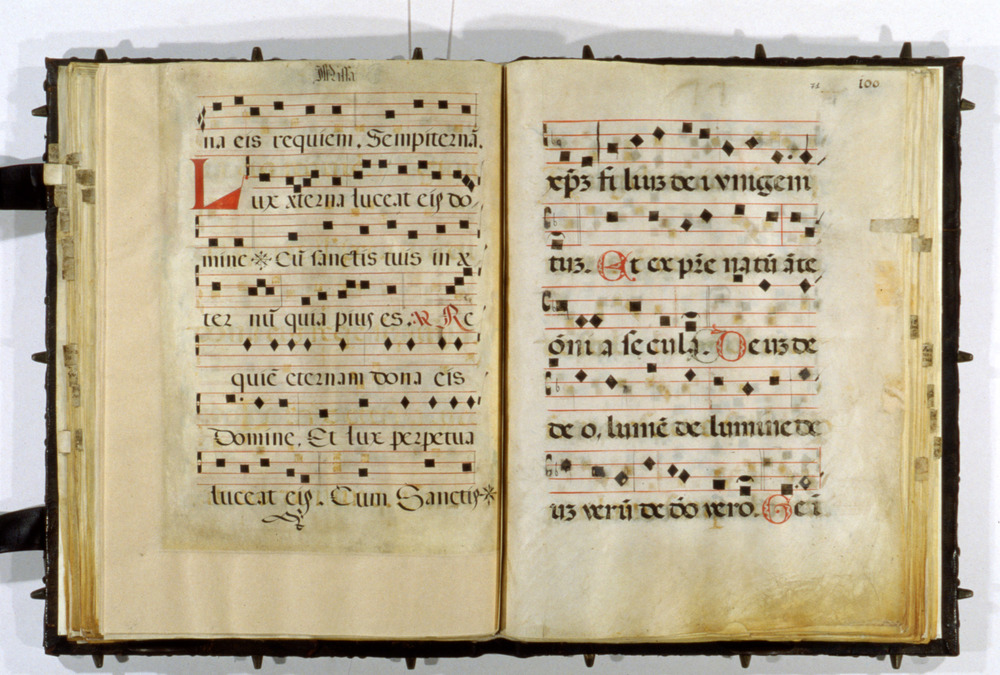 Missa
na eis requiem. Sempiternā.
Lux æterna luceat eis do
mine ※ Cū sanctis tuis in æ
ter nū quia pius es. ℟ Re
quiē eternam dona eis
Domine. Et lux perpetua
luceat eis. Cum Sanctis※
100
xp̄ȝ fi liuȝ de i vnigeni
tuȝ. Et ex pr̄e natū āte
ōni a secula. Deuȝ de
de o, lumē de lumine de
uȝ verū de d̄o vero. Geī